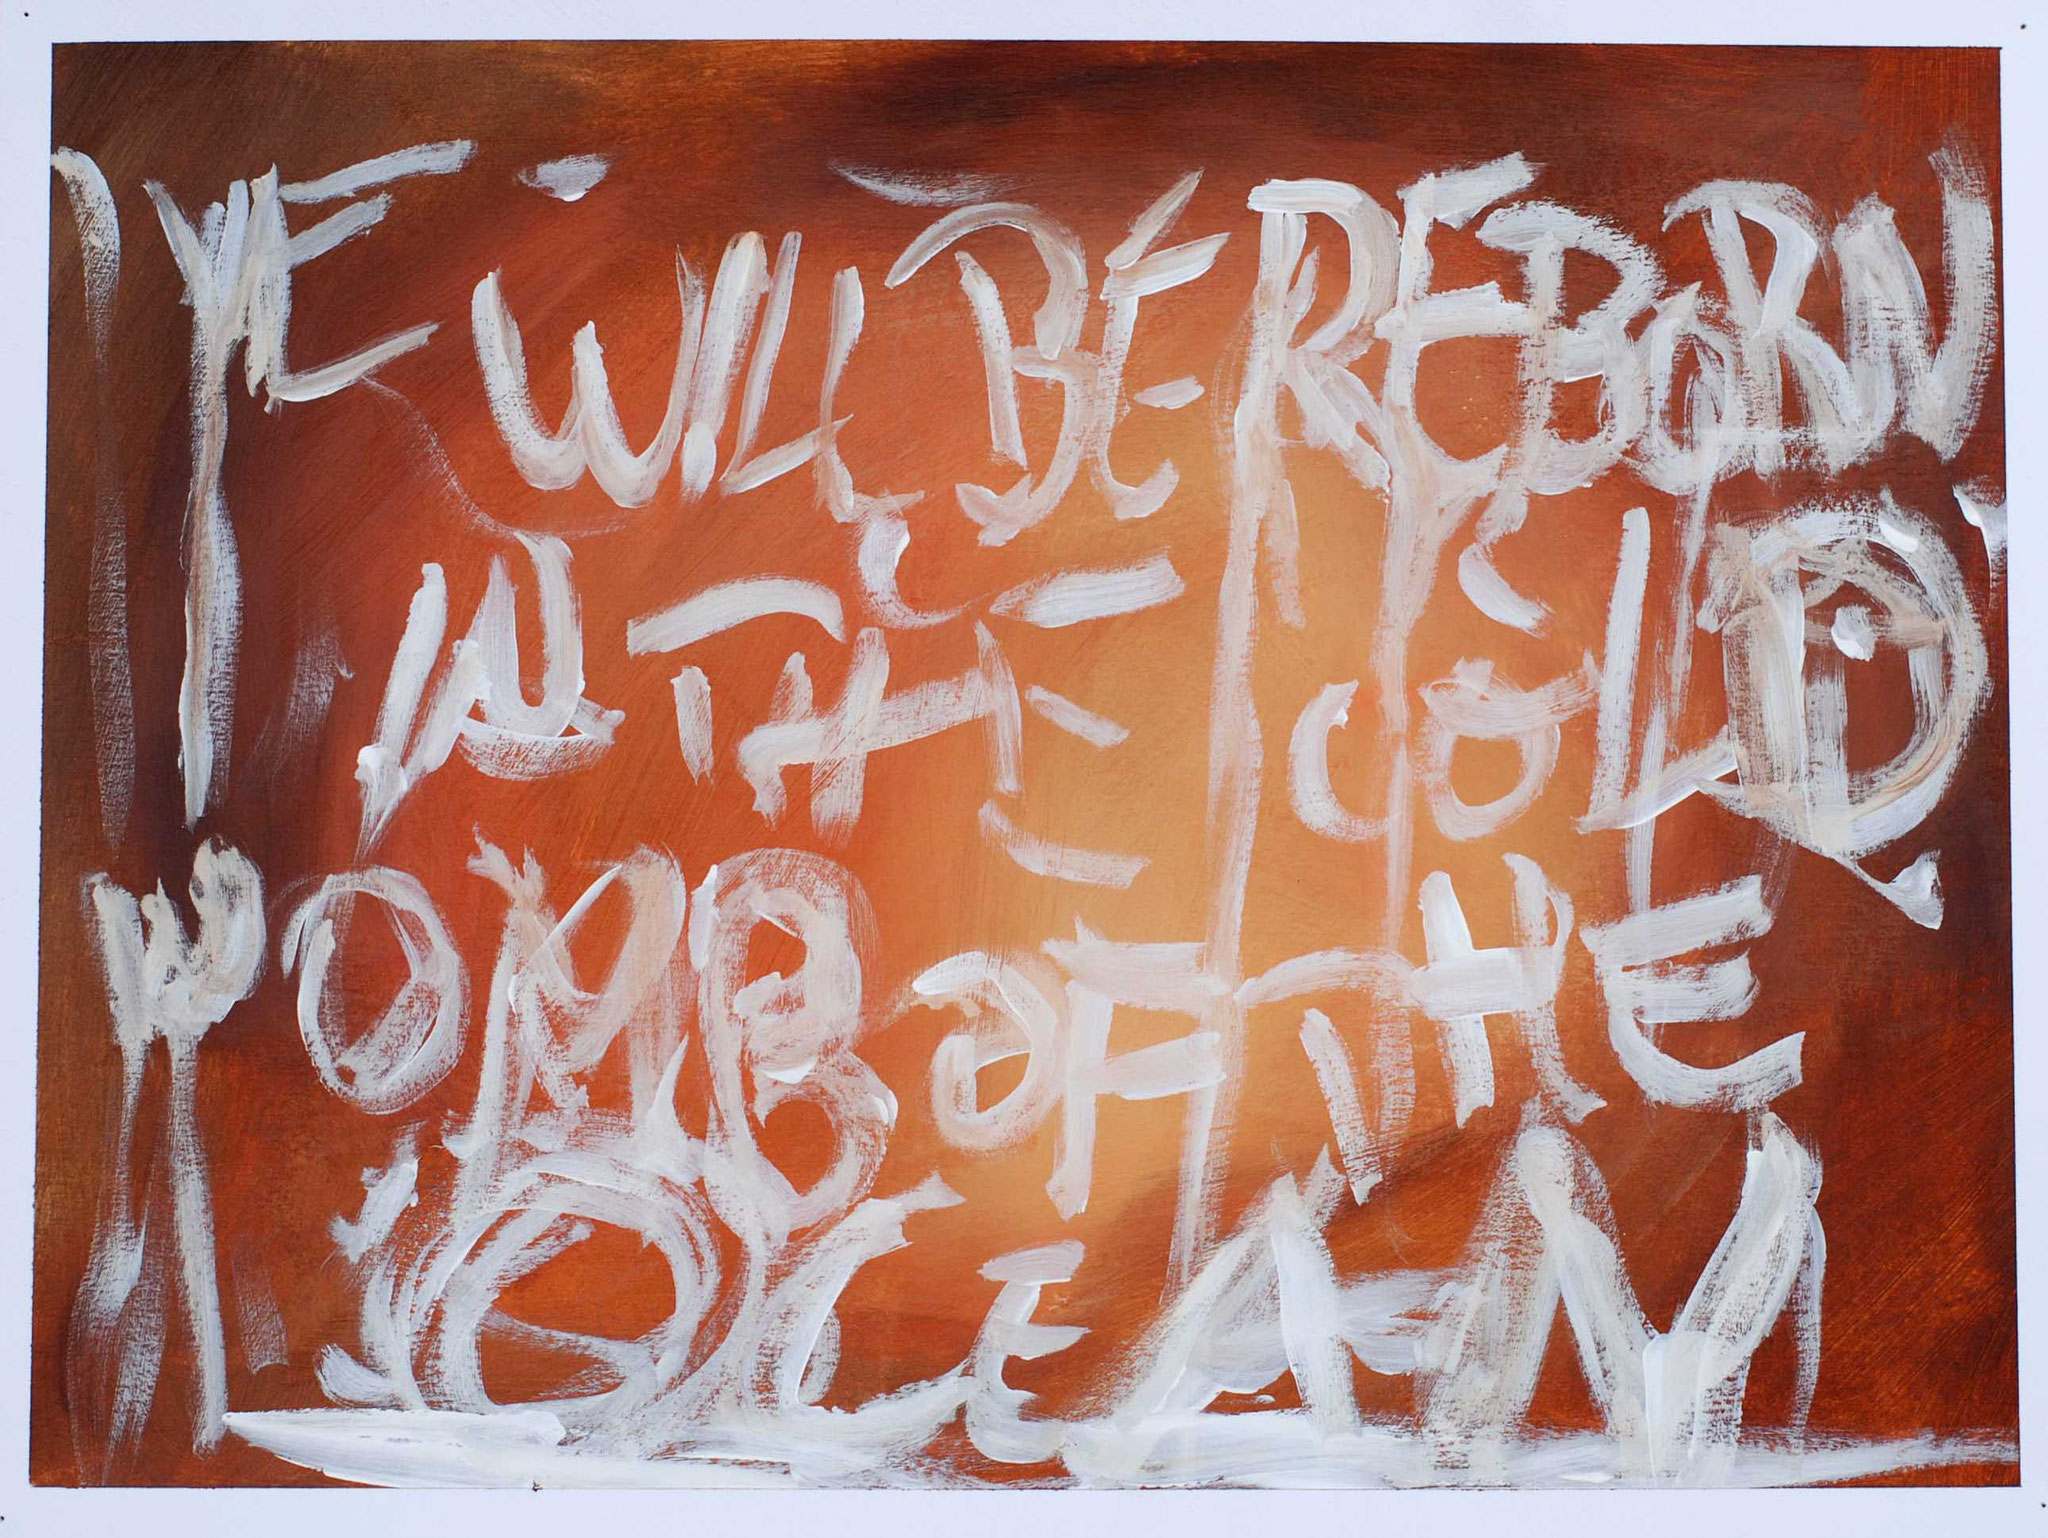 WE WILL BE REBORN
IN THE COLD
WOMB OF THE
OCEAN